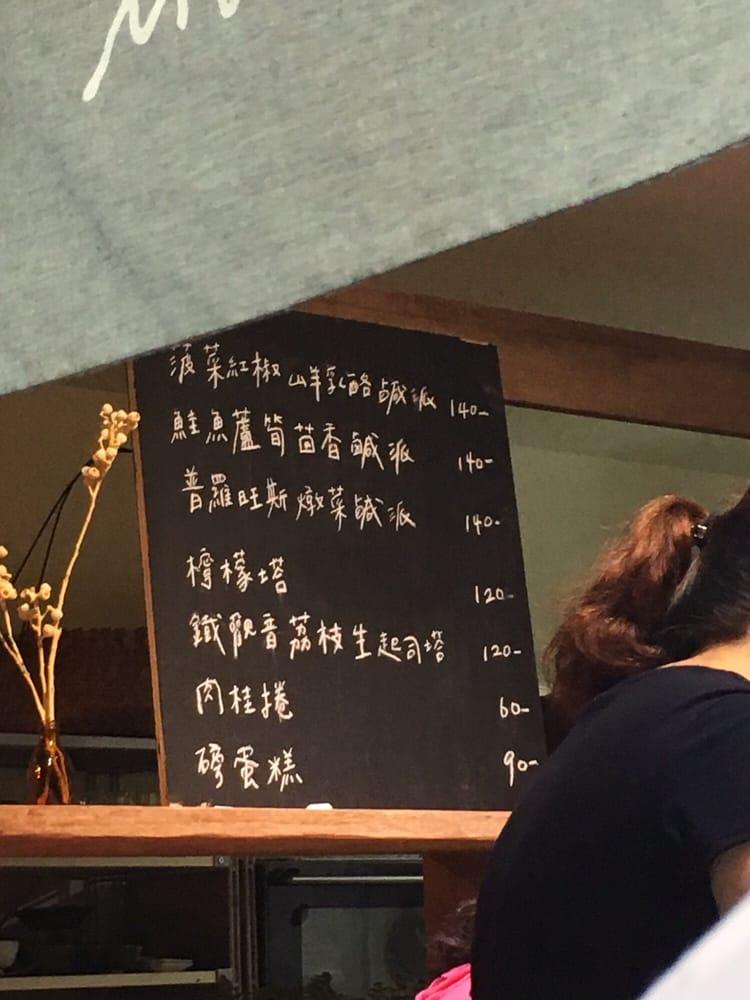 菠菜紅椒山羊乳酪鹹派 140-
鮭魚蘆筍茴香鹹派 140-
普羅旺斯燉菜鹹派 140-
檸檬塔 120-
鐵觀音荔枝生起司塔 120-
肉桂捲 60-
磅蛋糕 90-